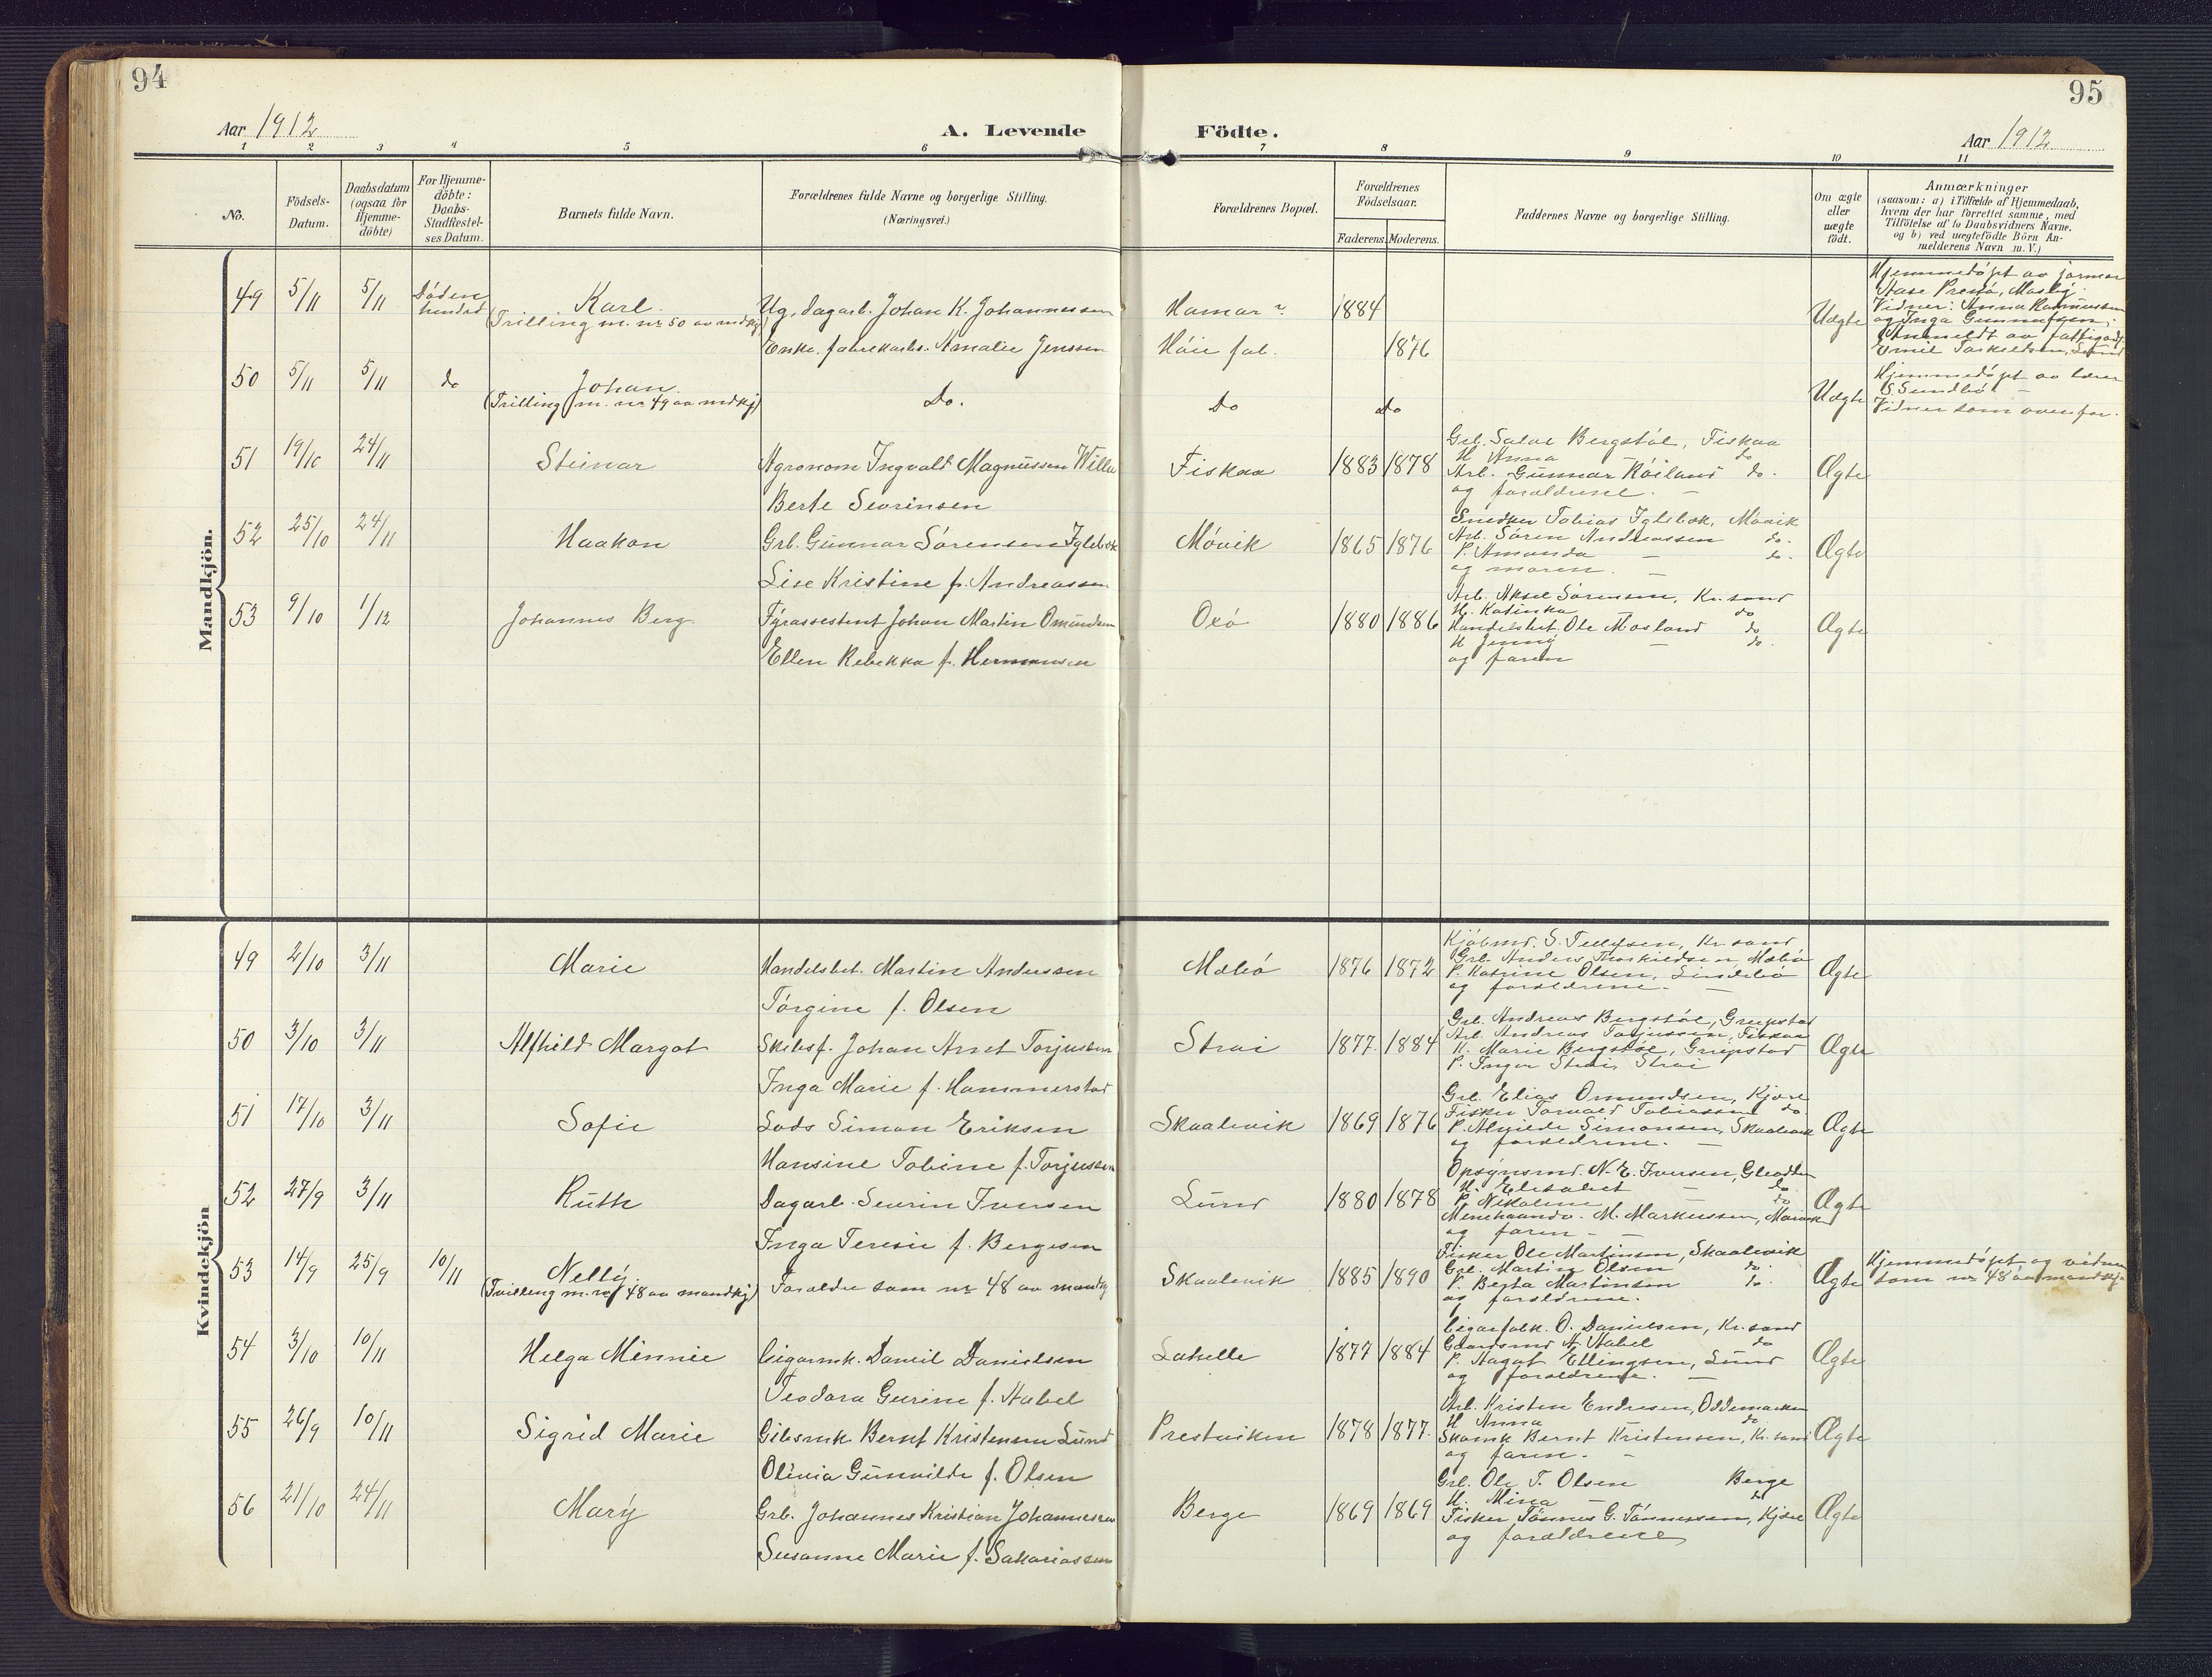 94
95
Aar 1912
A. Levende Födte.
Aar 1912
1 2 3 4 5 6 7 8 9 10 11
No.
Födsels-
Datum.
Daabsdatum
(ogsaa for
Hjemme-
döbte)
For Hjemme-
döbte:
Daabs-
Stadfæstel-
ses Datum.
Barnets fulde Navn.
Forældrenes fulde Navne og borgerlige Stilling.
(Næringsvei.)
Forældrenes Bopæl.
Forældrenes
Födselsaar.
Faderens. Moderens.
Faddernes Navne og borgerlige Stilling.
Om ægte
eller
uægte
födt.
Anmærkninger
(saasom: a) i Tilfælde af Hjemmedaab,
hvem der har forrettet samme, med
Tilföielse af to Daabsvidners Navne,
og b) ved uægtefödte Börn An-
melderens Navn m. V.)
Mandkjön.
49 5/11 5/11 Döden
hindret
Karl.
(Trilling m. nr 50 av mdkj)
Ug. dagarb. Johan K. Johannessen
Enke, fabrikarb. Amalie Jenssen
Hamar?
Höie fab.
1884
1876
Uægte
Hjemmedöpt av jormor
Aase Presö, Mosby.
Vidner: Anna Rasmussen
og Inga Gunnufsen.
Anmeldt av fattigord
Emil Torkelsen, Lund
50 5/11 5/11 do
Johan
(Trilling m. nr 49 av mdkj)
Do.
Do
do
Uægte
Hjemmedöpt av lærer
S. Sundbö –
Vidner som ovenfor.
51 19/10 24/11
Steinar
Agronom Ingvald Magnussen Wille
Berte Sevrinsen
Fiskaa
1883 1878
Grb. Salve Bergstöl, Fiskaa
H Anna do
Arb. Gunnar Röiland do.
og forældrene. –
Ægte
52 25/10 24/11
Haakon
Grb. Gunnar Sörensen Iglebæk
Lise Kristine f. Andreassen
Mövik
1865 1876
Snedker Tobias Iglebæk, Mövik
Arb. Sören Andreassen do.
P. Amanda – do.
og moren. –
Ægte
53 9/10 1/12
Johannes Berg.
Fyrassestent Johan Martin Omundsen
Ellen Rebekka f. Hermansen
Oxö
1880 1886
Arb. Aksel Sörensen, Kr.sand
H. Katinka do
Handelsbet. Ole Mosland do
H Jenny – do.
og faren
Ægte
Kvindekjön
49 2/10 3/11
Marie
Handelsbet. Martin Anderssen
Törgine f. Olsen
Mæbö
1876 1872
Kjöbmd. S. Tellefsen, Kr.sand
Grb. Anders Torkildsen Mæbö
P. Katrine Olsen, Lindebö
og forældrene. –
Ægte
50 3/10 3/11
Alfhild Margot
Skibsf. Johan Arnt Torjussen
Inga Marie f. Hammerstad
Strai
1877. 1884
Grb. Andreas Bergstöl, Greipstad
Arb. Andreas Torjussen, Fiskaa
H. Marie Bergstöl, Greipstad
P. Inger Strai, Strai
Ægte
51 17/10 3/11
Sofie
Lods Simon Eriksen
Hansine Tobine f. Torjussen
Skaalevik
1869 1876
Grb. Elias Omundsen, Kjöre
Fisker Torvald Tobiassen do.
P. Alvilde Simonsen, Skaalevik
og forældrene. –
Ægte
52 27/9 3/11
Ruth
Dagarb. Sevrin Iversen
Inga Teresie f. Bergesen
Lund
1880 1878
Opsynsmd. N. E. Iversen, Gleodden
H. Elisabet – do
P. Nikoline do
M. Markussen,
og faren –
Ægte
53 14/9 25/9 10/11
Nelly
(Tvilling m. nr 48 av mandkj)
Forældre som nr 48 av mandkj
Skaalevik
1885 1890
Fisker Ole Martinsen, Skaalevik
Grb. Martin Olsen do.
P. Berta Martinsen do.
og forældrene.
Ægte
Hjemmedöpt og vidner
som nr 48 av mandkj.
54 3/10 10/11
Helga Minnie
Cigarmk. Daniel Danielsen
Teodora Gurine f. Aabel
Lahelle
1877 1884
Cigarfabk. O. Danielsen, Kr.sand
Gaardsmd N. Aabel do
P. Aagot Ellingsen, Lund
og forældrene. –
Ægte
55 26/9 10/11
Sigrid Marie
Gibsmk. Bernt Kristensen Lund
Olivia Gunvilde f. Olsen
Prestviken
1878 1877.
Arb. Kristen Endresen, Oddemarken
H Anna do.
Skomk Bernt Kristensen, Kr.sand
og faren. –
Ægte
56 21/10 24/11
Mary
Grb. Johannes Kristian Johannessen
Susanne Marie f. Sakariassen
Berge
1869 1869
Grb. Ole T. Olsen Berge
H. Mina – do
Fisker Tönnes G. Tönnessen, Kjöre
og forældrene
Ægte